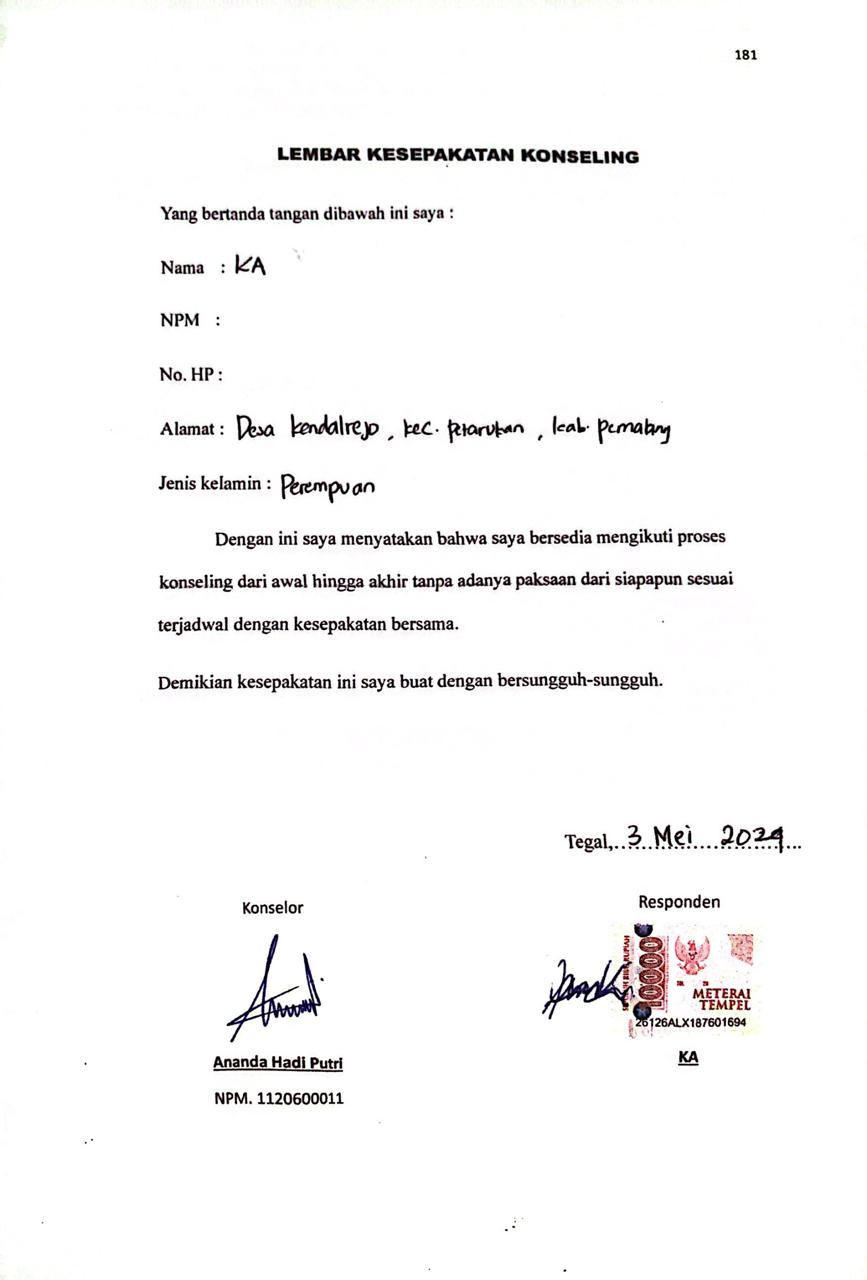 181
LEMBAR KESEPAKATAN KONSELING
Yang bertanda tangan dibawah ini saya :
Nama : KA
NPM :
No. HP :
Alamat : Desa kendalrejo, kec. petarukan, kab. pemalang
Jenis kelamin : Perempuan
Dengan ini saya menyatakan bahwa saya bersedia mengikuti proses
konseling dari awal hingga akhir tanpa adanya paksaan dari siapapun sesuai
terjadwal dengan kesepakatan bersama.
Demikian kesepakatan ini saya buat dengan bersungguh-sungguh.
Tegal, 3 Mei 2024
Konselor
Responden
10000
METERAI
TEMPEL
26126ALX187601694
Ananda Hadi Putri
KA
NPM. 1120600011